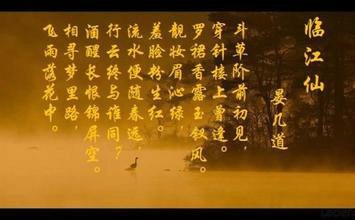 临江仙
晏几道
斗草阶前初见，
穿针楼上曾逢。
罗裙香露玉钗风。
靓妆眉沁绿，
羞脸粉生红。
流水便随春远，
行云终与谁同？
酒醒长恨锦屏空。
相寻梦里路，
飞雨落花中。